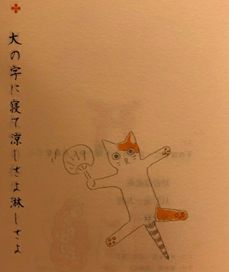 大の字に寝て涼しさよ淋しさよ